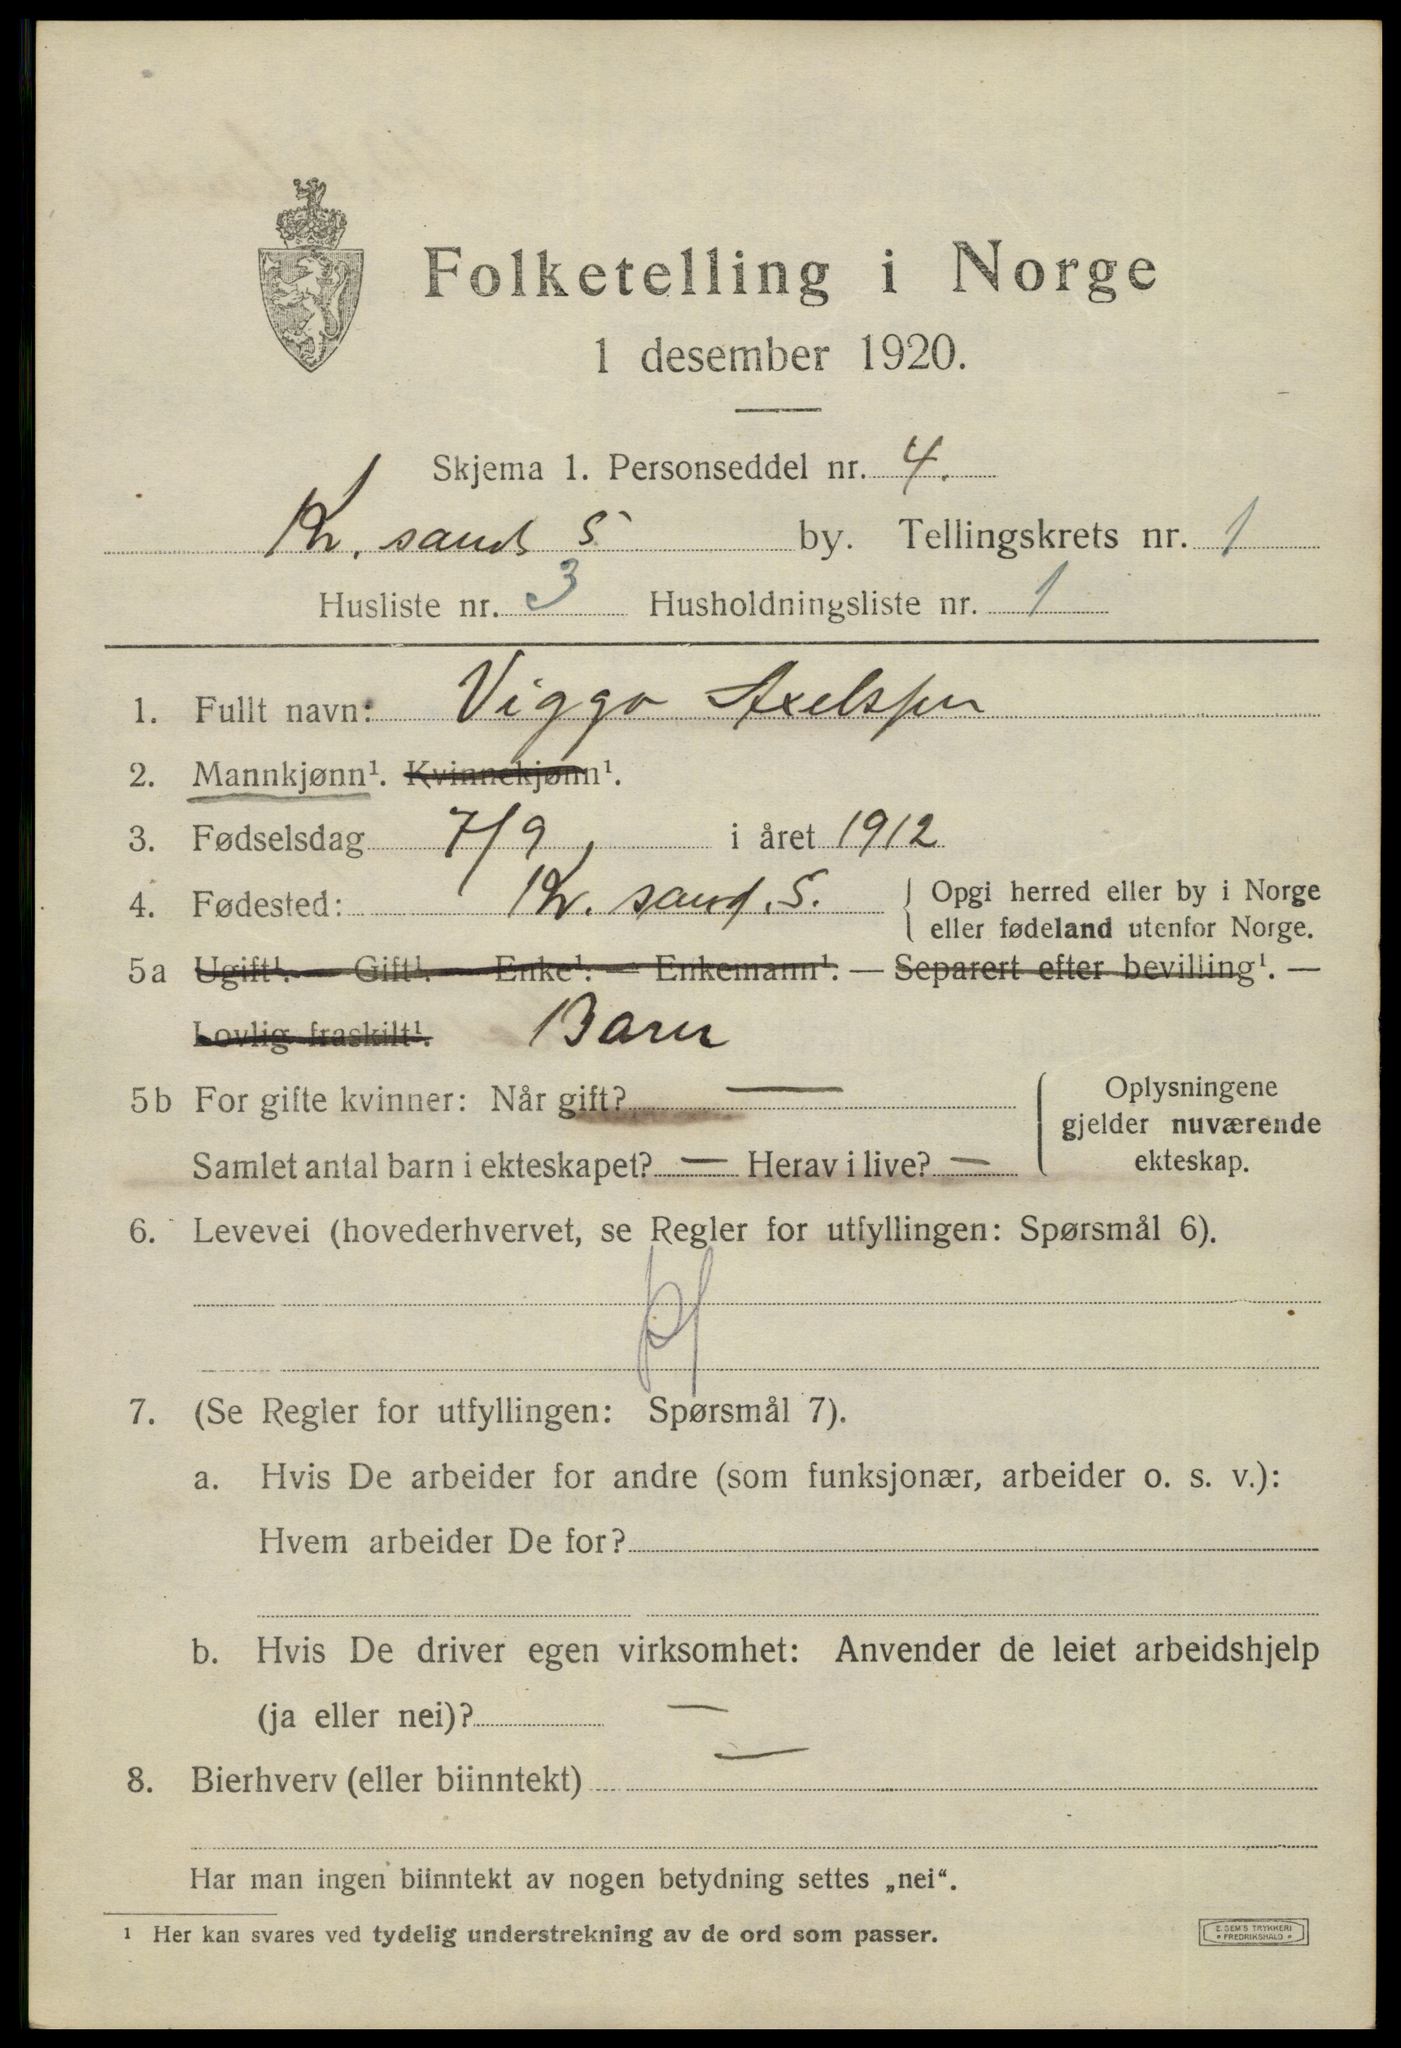 Folketelling i Norge
1 desember 1920.
Skjema 1. Personseddel nr. 4.
Kr. sand S by. Tellingskrets nr. 1
Husliste nr. 3 Husholdningsliste nr. 1
1. Fullt navn: Viggo Axelsen
2. Mannkjønn¹. Kvinnekjønn¹.
3. Fødselsdag 7/9 i året 1912
4. Fødested: Kr. sand. S. Opgi herred eller by i Norge
eller fødeland utenfor Norge.
5a Ugift¹. — Gift¹. — Enke¹. — Enkemann¹. — Separert efter bevilling¹. —
Lovlig fraskilt¹. Barn
5b For gifte kvinner: Når gift? —
Samlet antal barn i ekteskapet? — Herav i live? —
Oplysningene
gjelder nuværende
ekteskap.
6. Levevei (hovederhvervet, se Regler for utfyllingen: Spørsmål 6).
7. (Se Regler for utfyllingen: Spørsmål 7).
a. Hvis De arbeider for andre (som funksjonær, arbeider o. s. v.):
Hvem arbeider De for?
b. Hvis De driver egen virksomhet: Anvender de leiet arbeidshjelp
(ja eller nei)? —
8. Bierhverv (eller biinntekt) —
Har man ingen biinntekt av nogen betydning settes „nei“.
¹ Her kan svares ved tydelig understrekning av de ord som passer.
E. SEM'S TRYKKERI
* FREDRIKSHALD *